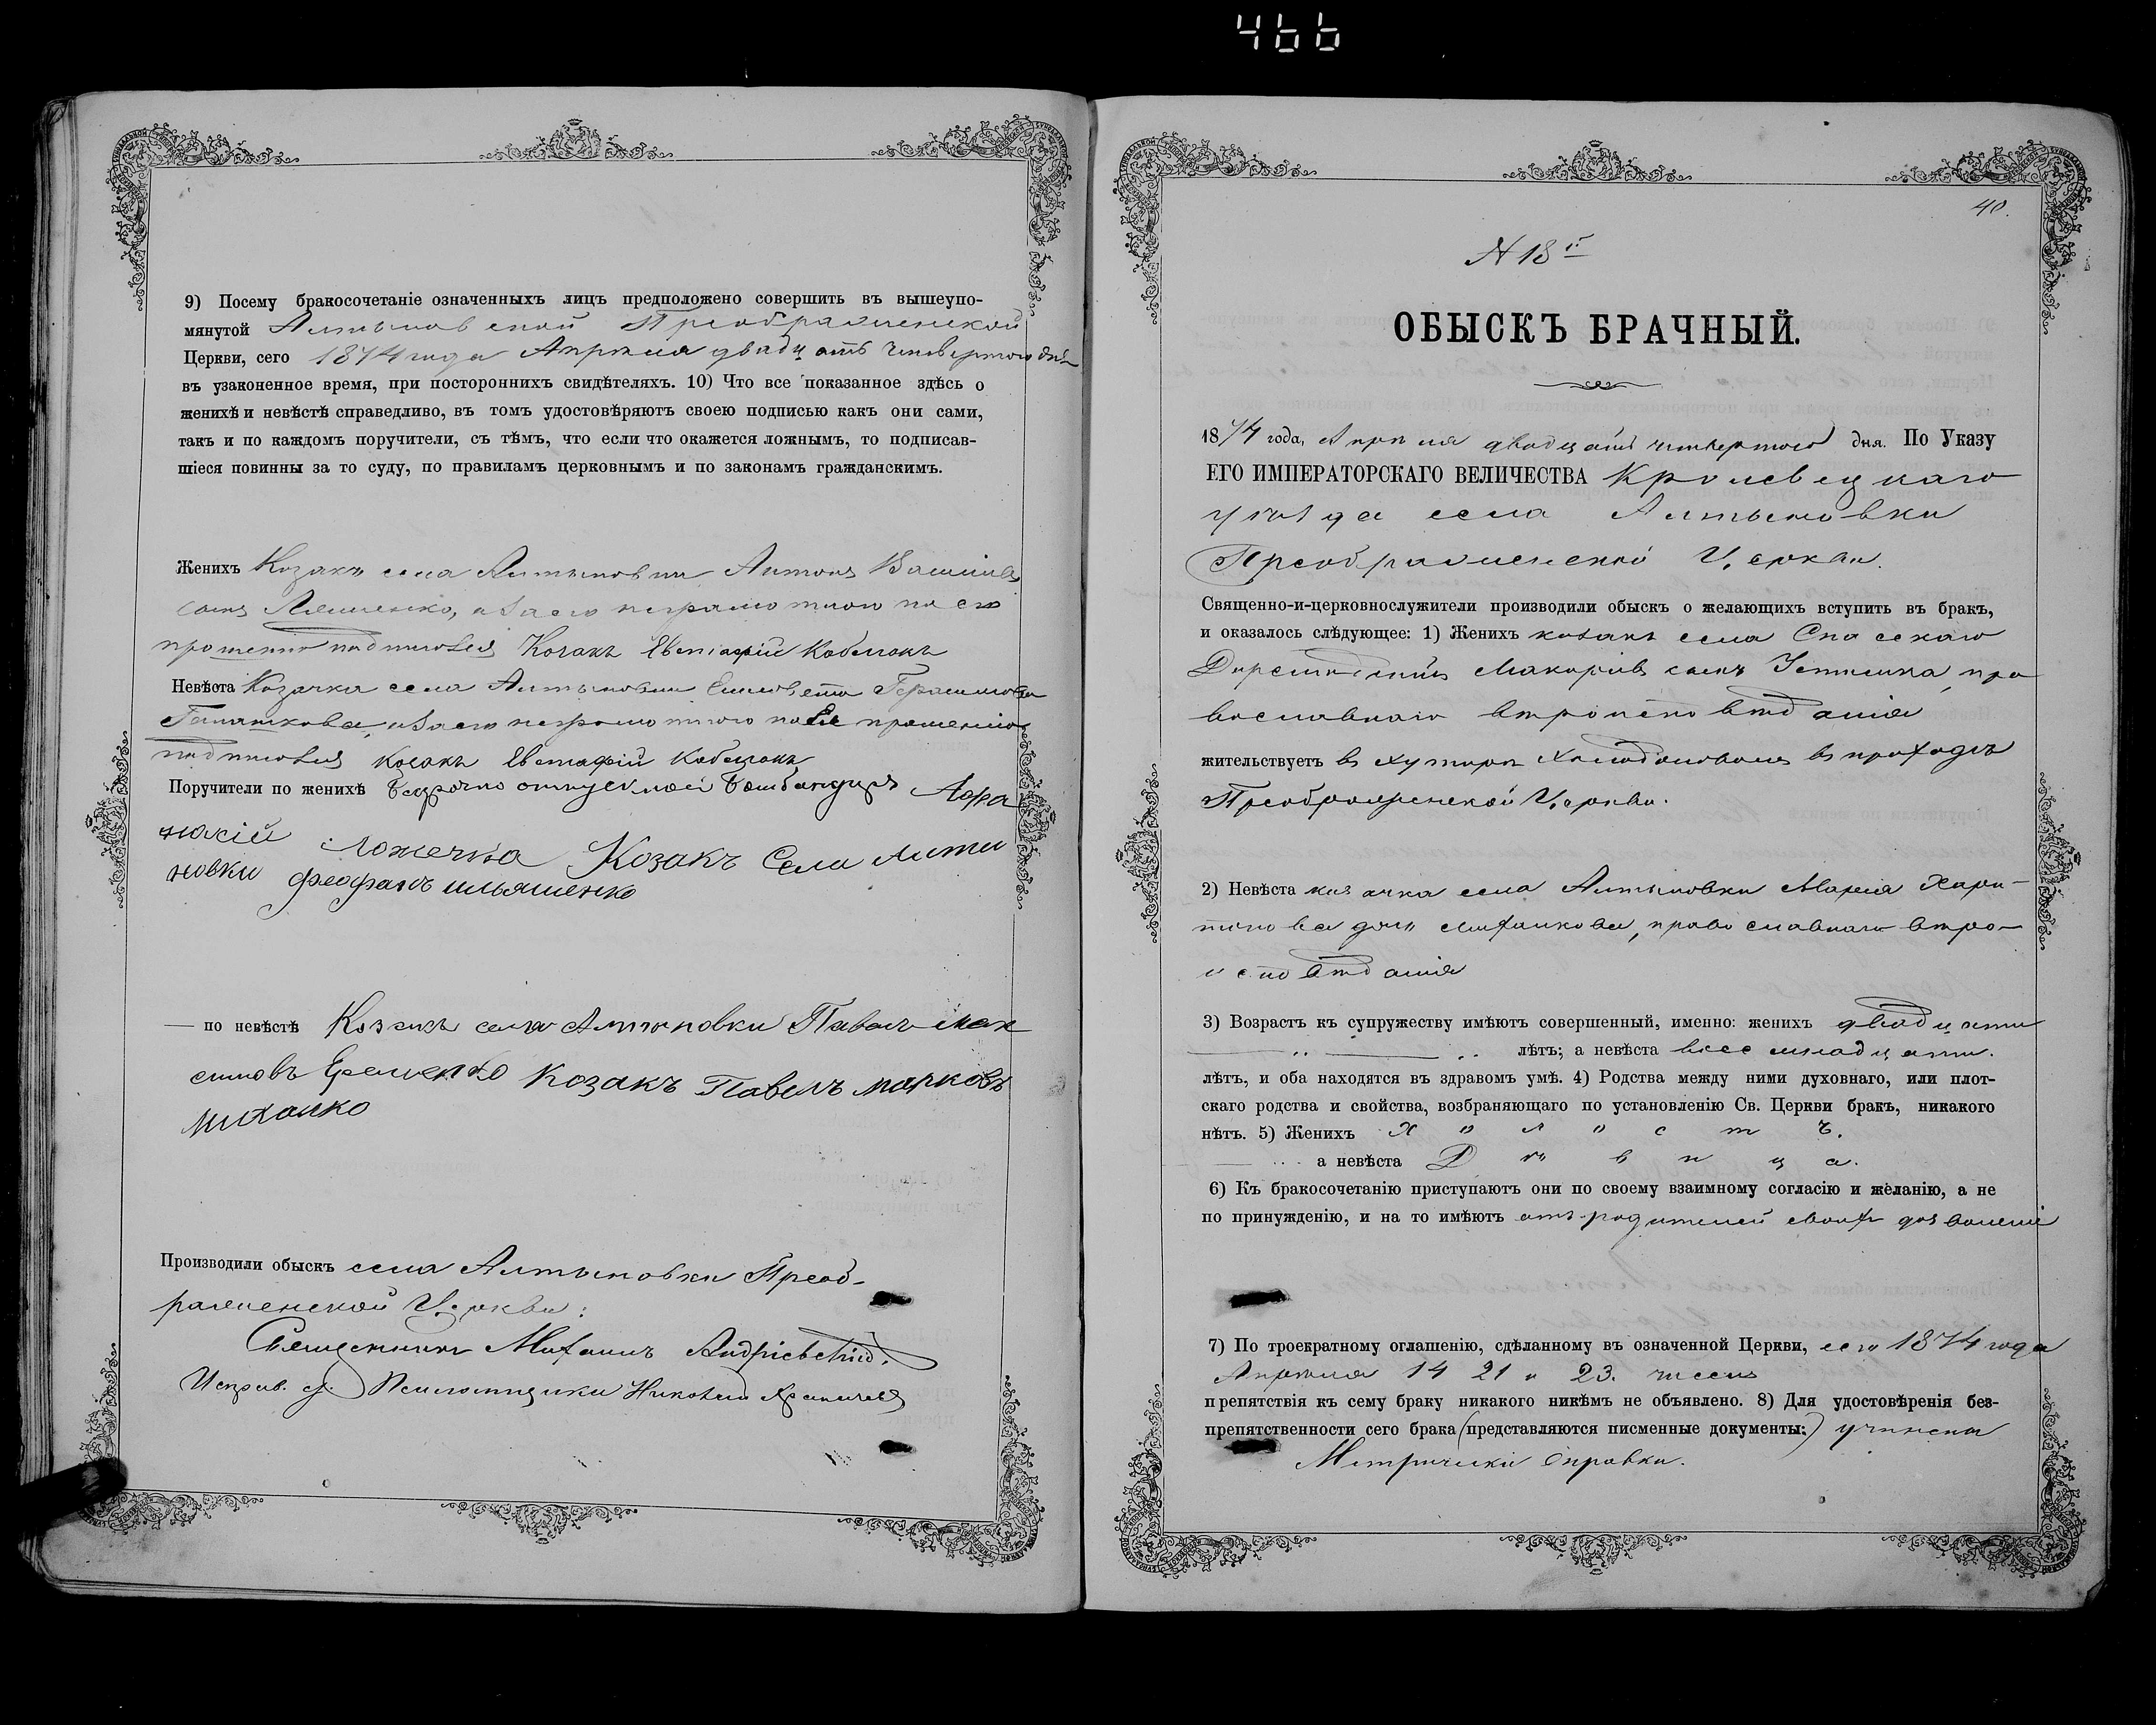 466
9) Посему бракосочетаніе означенныхъ лицъ предположено совершить въ вышеупо-
мянутой Алтыновской Преображенской
Церкви, сего 1874 года Апрѣля двадцать четвертого дня
въ узаконенное время, при постороннихъ свидѣтеляхъ. 10) Что все показанное здѣсь о
женихѣ и невѣстѣ справедливо, въ томъ удостовѣряютъ своею подписью какъ они сами,
такъ и по каждомъ поручители, съ тѣмъ, что если что окажется ложнымъ, то подписав-
шіеся повинны за то суду, по правиламъ церковнымъ и по законамъ гражданскимъ.
Женихъ Козакъ села Алтыновки Антонъ
сынъ а за его неграмотного по его
прошенію подписался Козакъ Евстафій Кобелакъ
Невѣста Козачка села Алтыновки Елисавета Герасимова
а за ею неграмотною по Ея прошенію
подписался козакъ Евстафій Кобелакъ
Поручители по женихѣ отпускной Афа
насій Ложечка Козакъ Села Алти
новки Феофанъ ильяшенко
— по невѣстѣ Козакъ села Алтыновки Павелъ Мак
симовъ Козакъ Павелъ марковъ
михалко
Производили обыскъ села Алтыновки Преоб-
раженской Церкви:
Священникъ Михаилъ Андріевскій.
Исправ. д. Псаломщика Николай
40.
N 18й
ОБЫСКЪ БРАЧНЫЙ.
1874 года, Апрѣля двадцать четвертого дня. По Указу
ЕГО ИМПЕРАТОРСКАГО ВЕЛИЧЕСТВА Кролевецкаго
уѣзда села Алтыновки
Преображенской Церкви.
Священно-и-церковнослужители производили обыскъ о желающихъ вступить въ бракъ,
и оказалось слѣдующее: 1) Женихъ козакъ села Спаскаго
Макаріевъ сынъ пра
вославнаго вѣроисповѣданія
жительствуетъ въ хуторѣ въ приходѣ
Преображенской Церкви.
2) Невѣста козачка села Алтыновки Марія Хари-
тонова дочь Михалкова, православнаго вѣро-
исповѣданія
3) Возрастъ къ супружеству имѣютъ совершенный, именно: женихъ двадцати
лѣтъ; а невѣста восемнадцати.
лѣтъ, и оба находятся въ здравомъ умѣ. 4) Родства между ними духовнаго, или плот-
скаго родства и свойства, возбраняющаго по установленію Св. Церкви бракъ, никакого
нѣтъ. 5) Женихъ Холостъ.
а невѣста Дѣвица.
6) Къ бракосочетанію приступаютъ они по своему взаимному согласію и желанію, а не
по принужденію, и на то имѣютъ отъ родителей своихъ дозволеніе
7) По троекратному оглашенію, сдѣланному въ означенной Церкви, сего 1874 года
Апрѣля 14 21 и 23. чиселъ
препятствія къ сему браку никакого никѣмъ не объявлено. 8) Для удостовѣренія без-
препятственности сего брака (представляются писменные документы:) учинена
Метрически справки.